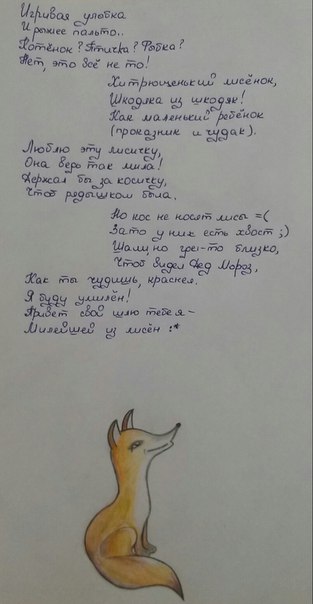 Игривая улыбка
И рыжее пальто..
Котёнок? Птичка? Рыбка?
Нет, это всё не то!
Хитрющенький лисёнок,
Шкодяка из шкодяк!
Как маленький ребёнок
(проказник и чудак).
Люблю эту лисичку,
Она ведь так мила!
Держал бы за косичку,
Чтоб рядышком была.
Но кос не носят лисы =(
Зато у них есть хвост ;)
Шали, но где-то близко,
Чтоб видел Дед Мороз,
Как ты чудишь, краснея.
Я буду умилён!
Привет свой шлю тебе я-
Милейшей из лисён :*